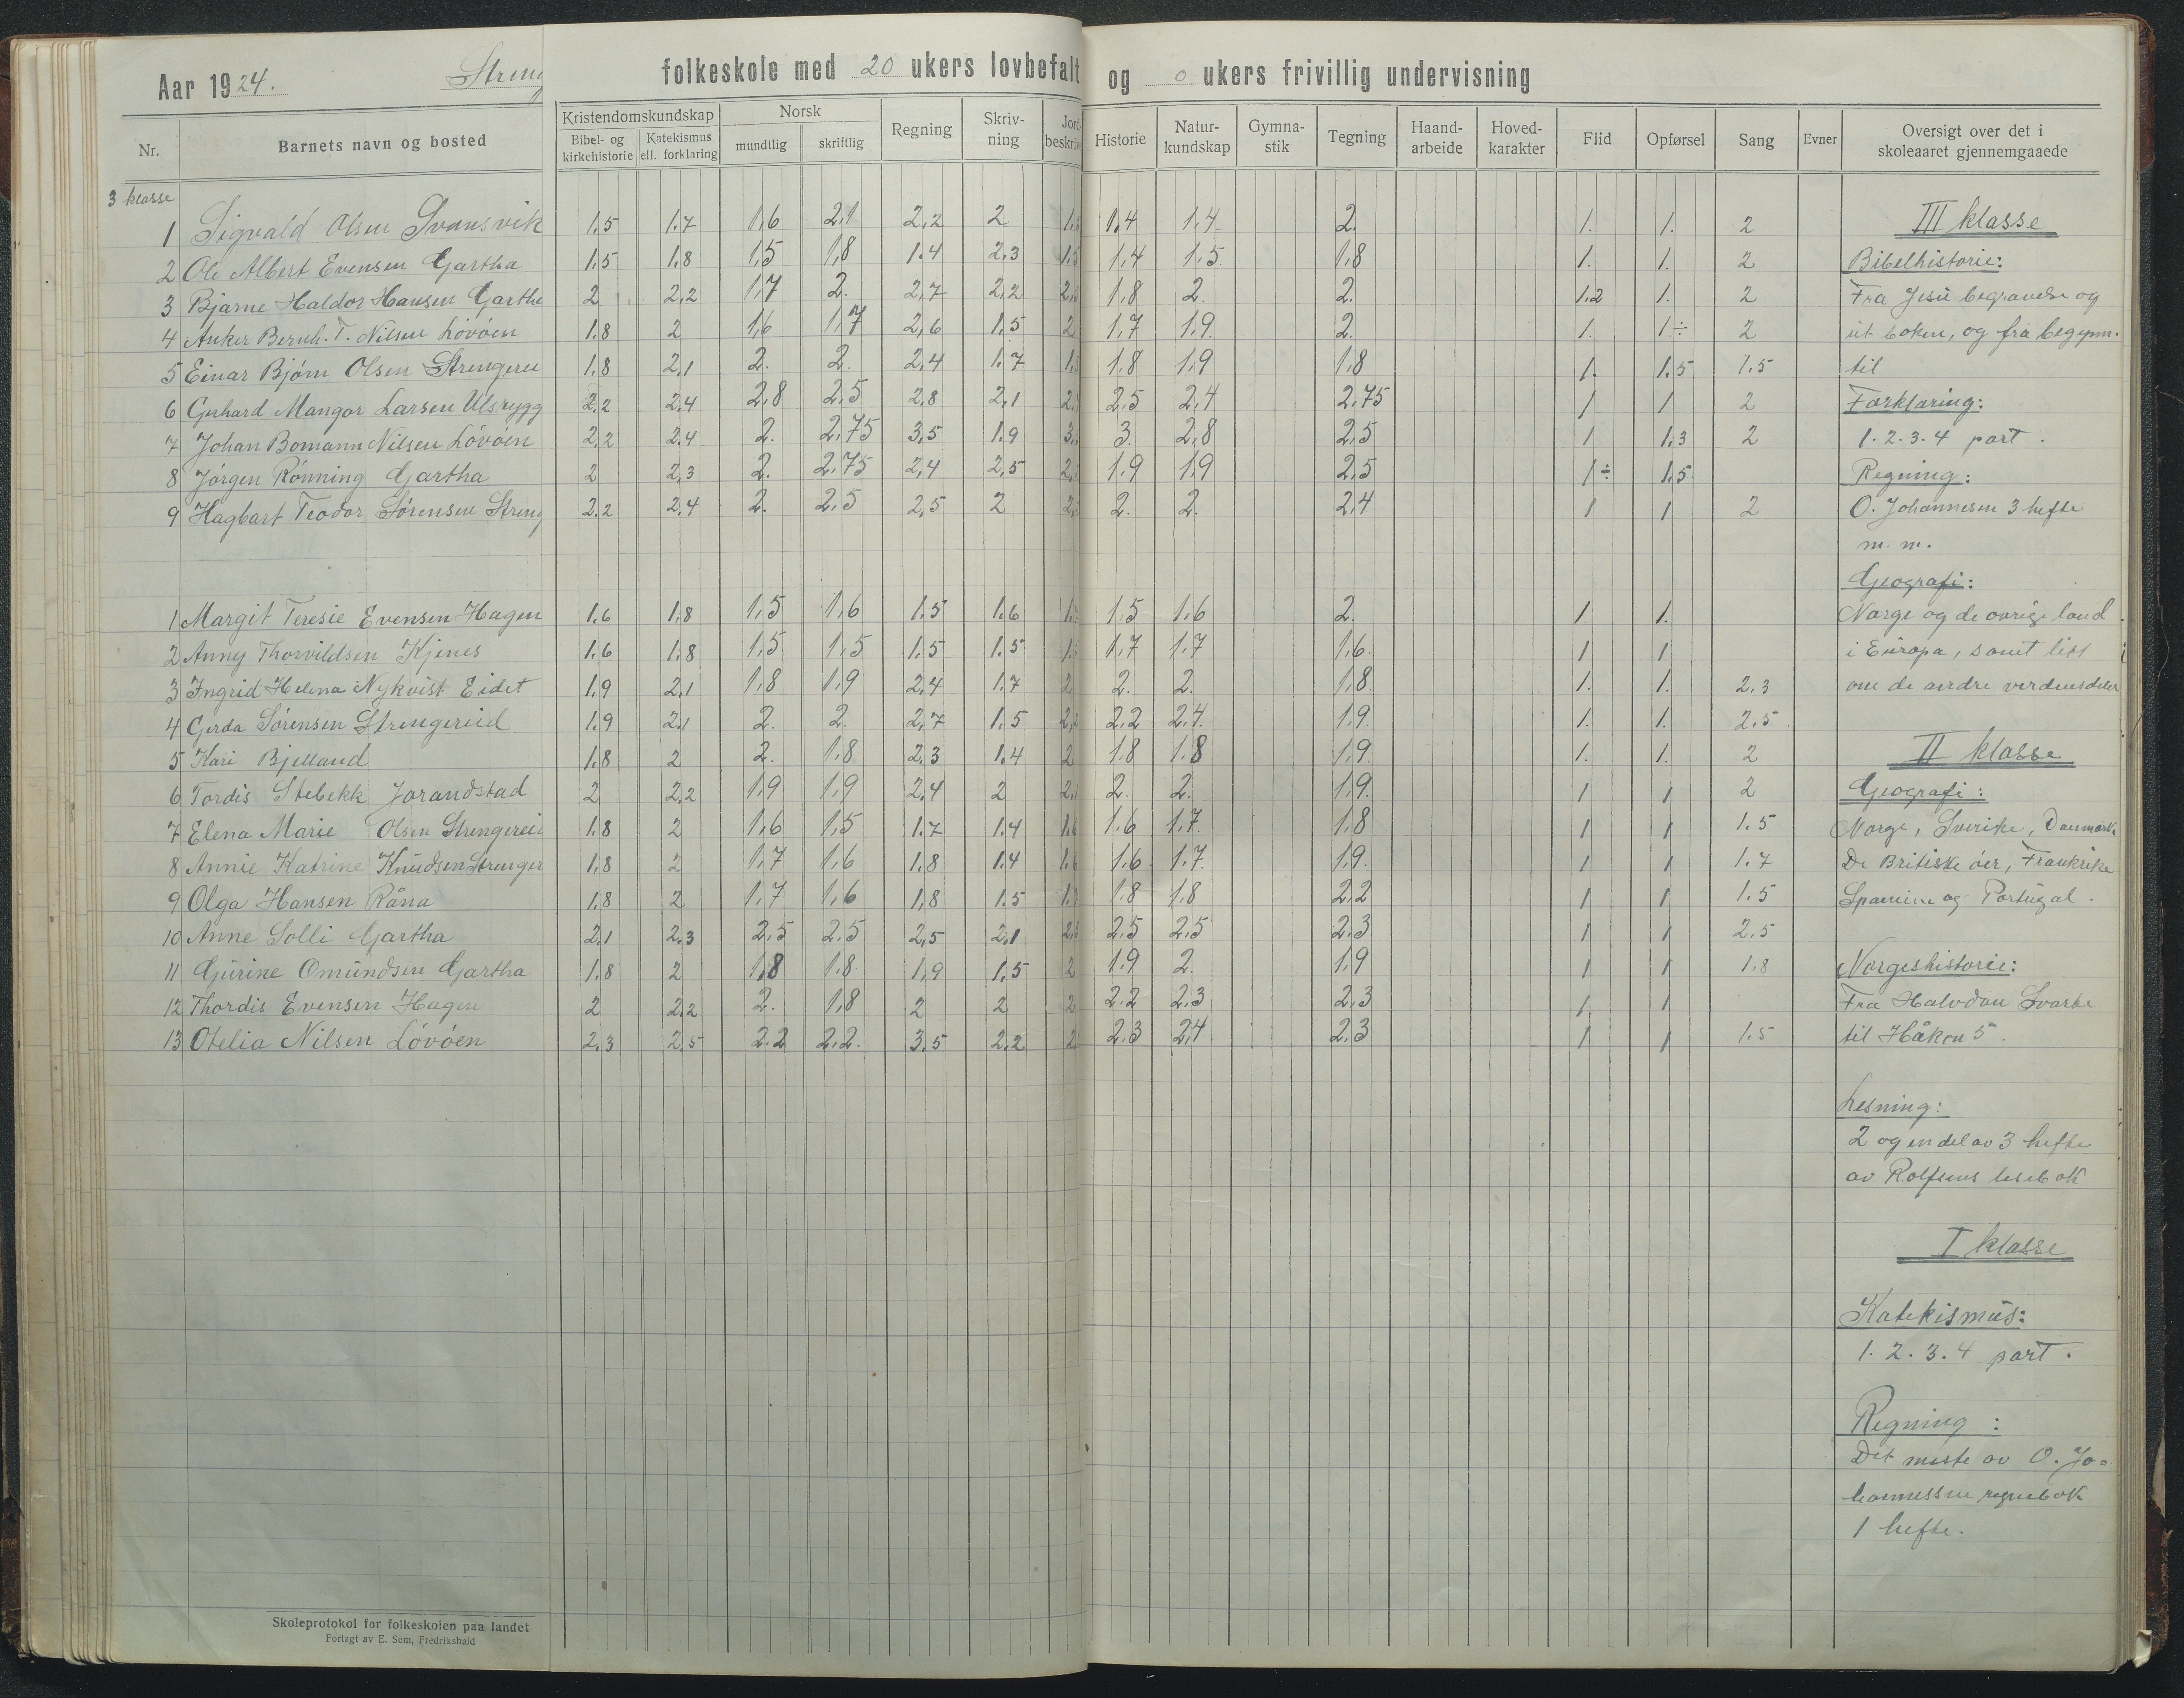 Aar 1924. Streng folkeskole med 20 ukers lovbefalt og 0 ukers frivillig undervisning
Nr. Barnets navn og bosted Kristendomskundskap Bibel- og kirkehistorie Katekismus ell. forklaring Norsk mundtlig skriftlig Regning Skriv-ning Jord beskriv Historie Natur-kundskap Gymna-stik Tegning Haand-arbeide Hoved-karakter Flid Opførsel Sang Evner Oversigt over det i skoleaaret gjennemgaaede
3 klasse
1 Sigvald Olsen Svansvik 1.5 1.7 1,6 2,1 2,2 2 1.5 1.4 1.4. 2. 1. 1. 2 III klasse
2 Ole Albert Evensen Gartha 1.5 1.8 1,5 1,8 1.4 2.3 1.5 1,4 1.5 1.8 1. 1. 2 Bibelhistorie:
3 Bjarne Haldor Hansen Garthe 2 2,2 1,7 2. 2,7 2,2 2, 1,8 2. 2. 1.2 1. 2 Fra Jesu begravelse og
4 Anker Bernh. T. Nilsen Lövöen 1.8 2 1,6 1,7 2,6 1.5 2 1.7 1.9. 2. 1. 1.÷ 2 ut boken, og fra begynn.
5 Einar Bjørn Olsen Strengerei 1.8 2,1 2. 2. 2,4 1.7 1, 1.8 1.9 1.8 1. 1.5 1.5 til
6 Gerhard Mangor Larsen Ulsrygg 2.2 2.4 2,8 2,5 2.8 2,1 2, 2.5 2,4 2.75 1 1 2 Forklaring:
7 Johan Bomann Nilsen Lövöen 2,2 2.4 2. 2,75 3,5 1.9 3. 3. 2,8 2,5 1 1.3 2 1. 2. 3. 4 part.
8 Jörgen Rönning Gartha 2 2,3 2. 2,75 2,4 2,5 2, 1.9 1.9 2.5 1÷ 1.5 Regning:
9 Hagbart Teodor Sørensen Streng 2.2 2,4 2. 2,5 2,5 2 2, 2. 2. 2,4 1 1 2 O. Johannesen 3 hefte
m. m.
Geografi:
1 Margit Teresie Evensen Hagen 1.6 1.8 1,5 1,6 1.5 1.6 1. 1.5 1.6 2. 1. 1. Norge og de øvrige land
2 Anny Thorvildsen Kjenes 1.6 1.8 1.5 1,5 1.5 1.5 1. 1,7 1.7 1,6. 1 1 i Europa, samt litt
3 Ingrid Helena Nykvist Eidet 1.9 2,1 1,8 1,9 2,4 1.7 2 2. 2. 1.8. 1. 1. 2.3 om de andre verdensdeler
4 Gerda Sörensen Strengereid 1.9 2.1 2. 2. 2,7 1.5 2, 2.2 2.4. 1.9. 1. 1. 2.5.
5 Kari Bjelland 1.8 2 2. 1.8 2,3 1.4 2 1.8 1.8 1.9. 1. 1. 2 II klasse
6 Tordis Stebekk Jorandstad 2 2,2 1,9 1,9 2,4 2 2, 2. 2. 1.9. 1 1 2 Geografi:
7 Elena Marie Olsen Strengereid 1.8 2 1,6 1.5 1.7 1.4 1.6 1.6 1.7. 1.8 1 1 1.5 Norge, Sverike, Danmark
8 Annie Katrine Knudsen Strenger 1,8 2 1,7 1,6 1.8 1.4 1.6 1.6 1.7. 1.9. 1 1 1.7 De Britiske öer, Frankrike
9 Olga Hansen Råna 1.8 2 1,7 1,6 1,8 1.5 1.7 1.8 1.8 2.2 1 1 1.5 Spanien og Portugal.
10 Anne Solli Gartha 2,1 2.3 2,5 2.5 2,5 2,1 2,5 2.5 2.5 2.3 1 1 2.5
11 Gurine Omundsen Gartha 1.8 2 1,8 1.8 1,9 1.5 2 1.9 2. 1.9 1 1 1.8 Norgeshistorie:
12 Thordis Evensen Hagen 2 2,2 2. 1,8 2 2 2 2.2 2.3 2.3 1 1 Fra Halvdan Svarte
13 Otelia Nilsen Lövöen 2.3 2,5 2.2 2,2. 3.5 2.2 2 2.3 2.4 2.3 1 1 1.5 til Håkon 5.
Lesning:
2 og en del av 3 hefte
av Rolfsens lesebok
I klasse
Katekismus:
1. 2. 3. 4 part.
Regning:
Det meste av O. Jo-
hannessen regnebok
1 hefte.
Skoleprotokol for folkeskolen paa landet
Forlagt av E. Sem, Fredrikshald